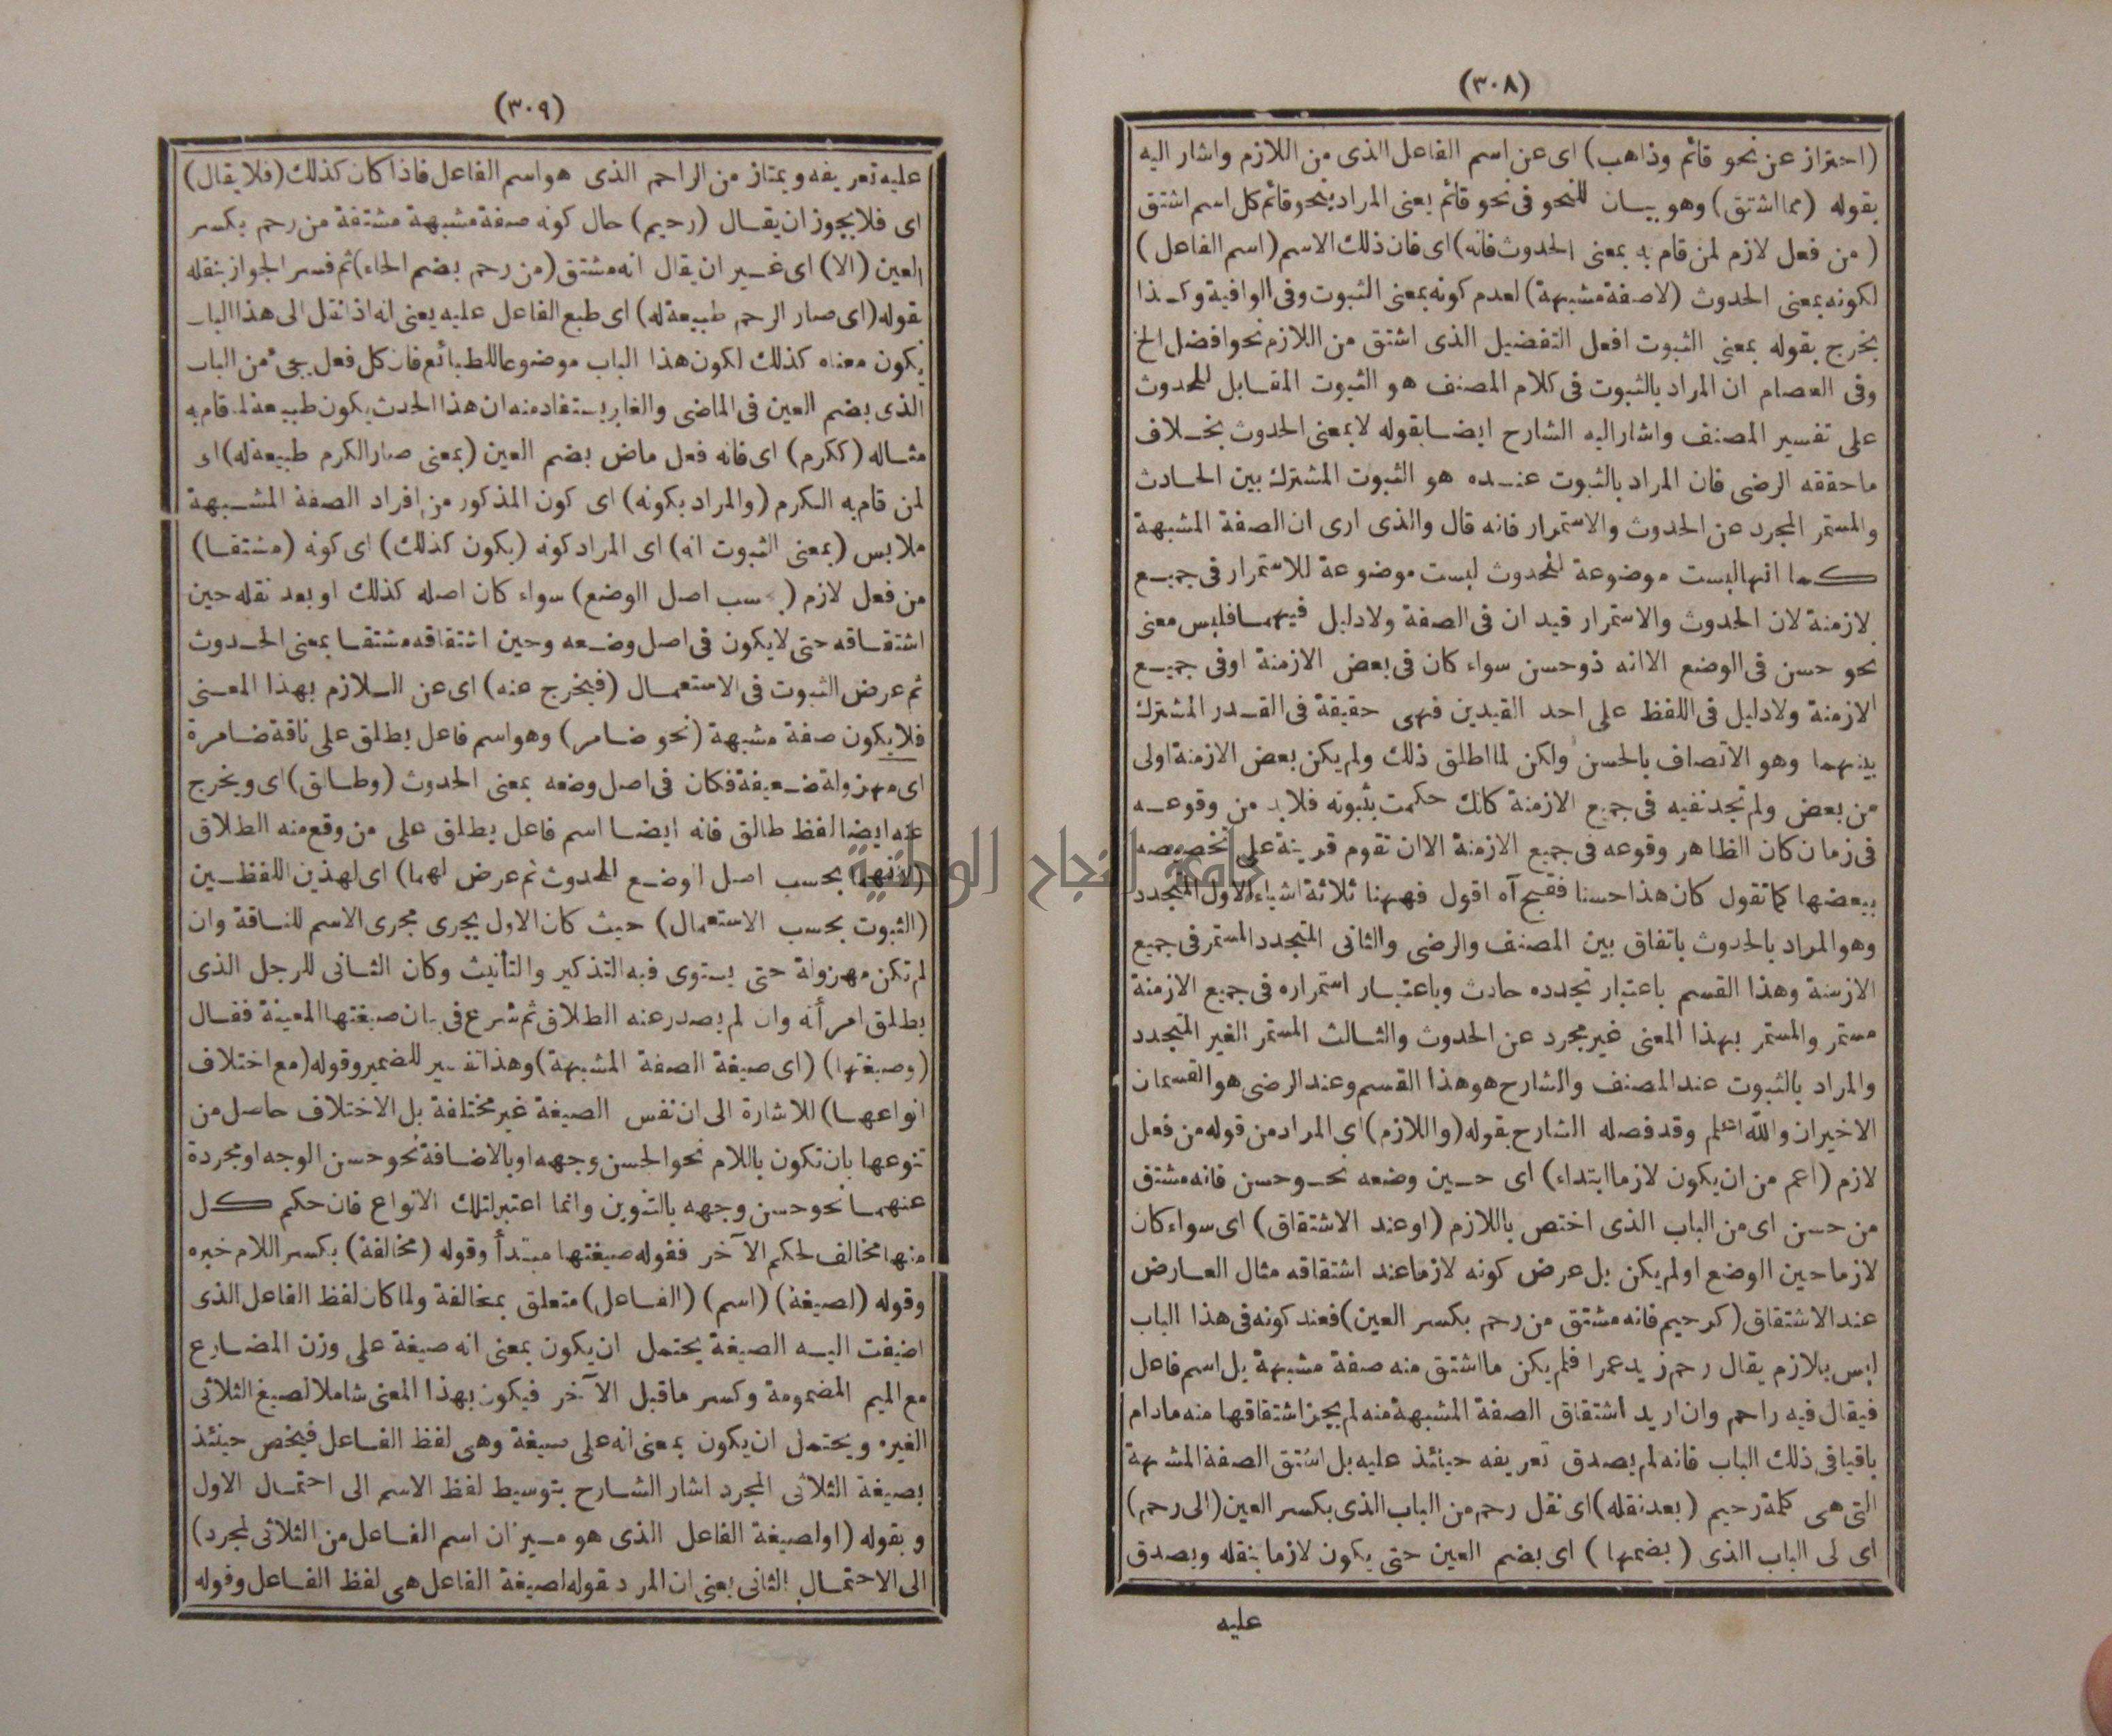 (٣٠٨)
(احتراز عن نحو قائم وذاهب) اى عن اسم الفاعل الذى من اللازم واشار اليه
بقوله (مما اشتق) وهو بيان للنحو فى نحو قائم يعنى المراد بنحو قائم كل اسم اشتق
(من فعل لازم لمن قام به بمعنى الحدوث فانه) اى فان ذلك الاسم (اسم الفاعل)
لكونه بمعنى الحدوث (لا صفة مشبهة) لعدم كونه بمعنى الثبوت وفى الوافية وكذا
يخرج بقوله بمعنى الثبوت افعل التفضيل الذى اشتق من اللازم نحو افضل الخ
وفى العصام ان المراد بالثبوت فى كلام المصنف هو الثبوت المقابل للحدوث
على تفسير المصنف واشار اليه الشارح ايضا بقوله لا بمعنى الحدوث بخلاف
ما حققه الرضى فان المراد بالثبوت عنده هو الثبوت المشترك بين الحادث
والمستمر المجرد عن الحدوث والاستمرار فانه قال والذى ارى ان الصفة المشبهة
كما انها ليست موضوعة للحدوث ليست موضوعة للاستمرار فى جميع
لازمنة لان الحدوث والاستمرار قيد ان فى الصفة ولا دليل فيهما فليس معنى
نحو حسن فى الوضع الا انه ذو حسن سواء كان فى بعض الازمنة او فى جميع
الازمنة ولا دليل فى اللفظ على احد القيدين فهى حقيقة فى القدر المشترك
بينهما وهو الاتصاف بالحسن ولكن لما اطلق ذلك ولم يكن بعض الازمنة اولى
من بعض ولم تجد نفيه فى جميع الازمنة كانك حكمت بثبوته فلا بد من وقوعه
فى زمان كان الظاهر وقوعه فى جميع الازمنة الا ان تقوم قرينة على تخصيصه
ببعضها كما تقول كان هذا حسنا فقبح آه اقول فههنا ثلاثة اشياء الاول المتجدد
وهو المراد بالحدوث باتفاق بين المصنف والرضى والثانى المتجدد المستمر فى جميع
الازمنة وهذا القسم باعتبار تجدده حادث وباعتبار استمراره فى جميع الازمنة
مستمر والمستمر بهذا المعنى غير مجرد عن الحدوث والثالث المستمر الغير المتجدد
والمراد بالثبوت عند المصنف والشارح هو هذا القسم وعند الرضى هو القسمان
الاخيران والله اعلم وقد فصله الشارح بقوله (واللازم) اى المراد من قوله من فعل
لازم (اعم من ان يكون لازما ابتداء) اى حين وضعه نحو حسن فانه مشتق
من حسن اى من الباب الذى اختص باللازم (او عند الاشتقاق) اى سواء كان
لازما حين الوضع او لم يكن بل عرض كونه لازما عند اشتقاقه مثال العارض
عند الاشتقاق (كرحيم فانه مشتق من رحم بكسر العين) فعند كونه فى هذا الباب
ليس بلازم يقال رحم زيد عمرا فلم يكن ما اشتق منه صفة مشبهة بل اسم فاعل
فيقال فيه راحم وان اريد اشتقاق الصفة المشبهة منه لم يجز اشتقاقها منه مادام
باقيا فى ذلك الباب فانه لم يصدق تعريفه حينئذ عليه بل اشتق الصفة المشبهة
التى هى كلمة رحيم (بعد نقله) اى نقل رحم من الباب الذى بكسر العين (الى رحم)
اى لى الباب الذى (بضمها) اى بضم العين حتى يكون لازما بنقله ويصدق
عليه
(٣٠٩)
عليه تعريفه ويمتاز من الراحم الذى هو اسم الفاعل فاذا كان كذلك (فلا يقال)
اى فلا يجوز ان يقال (رحيم) حال كونه صفة مشبهة مشتقة من رحم بكسر
العين (الا) اى غير ان يقال انه مشتق (من رحم بضم الحاء) ثم فسر الجواز بنقله
بقوله (اى صار الرحم طبيعة له) اى طبع الفاعل عليه يعنى انه اذا نقل الى هذا الباب
يكون معناه كذلك لكون هذا الباب موضوعا للطبائع فان كل فعل يجئ من الباب
الذى بضم العين فى الماضى والغابر يستفاد منه ان هذا الحدث يكون طبيعة لمن قام به
مثاله (ككرم) اى فانه فعل ماض بضم العين (بمعنى صار الكرم طبيعة له) اى
لمن قام به الكرم (والمراد بكونه) اى كون المذكور من افراد الصفة المشبهة
ملابس (بمعنى الثبوت انه) اى المراد كونه (يكون كذلك) اى كونه (مشتقا)
من فعل لازم (بحسب اصل الوضع) سواء كان اصله كذلك او بعد نقله حين
اشتقاقه حتى لا يكون فى اصل وضعه وحين اشتقاقه مشتقا بمعنى الحدوث
ثم عرض الثبوت فى الاستعمال (فيخرج عنه) اى عن اللازم بهذا المعنى
فلا يكون صفة مشبهة (نحو ضامر) وهو اسم فاعل يطلق على ناقة ضامرة
اى مهزولة ضعيفة فكان فى اصل وضعه بمعنى الحدوث (وطالق) اى ويخرج
عنه ايضا لفظ طالق فانه ايضا اسم فاعل يطلق على من وقع منه الطلاق
(لانهما بحسب اصل الوضع للحدوث ثم عرض لهما) اى لهذين اللفظين
(الثبوت بحسب الاستعمال) حيث كان الاول يجرى مجرى الاسم للناقة وان
لم تكن مهزولة حتى يستوى فيه التذكير والتأنيث وكان الثانى للرجل الذى
يطلق امرأته وان لم يصدر عنه الطلاق ثم شرع فى بيان صيغتها المعينة فقال
(وصيغتها) (اى صيغة الصفة المشبهة) وهذا تفسير للضمير وقوله (مع اختلاف
انواعها) للاشارة الى ان نفس الصيغة غير مختلفة بل الاختلاف حاصل من
تنوعها بان تكون باللام نحو الحسن وجهه او بالاضافة نحو حسن الوجه او مجردة
عنهما نحو حسن وجهه بالتنوين وانما اعتبر لتلك الانواع فان حكم كل
منها مخالف لحكم الآخر فقوله صيغتها مبتدأ وقوله (مخالفة) بكسر اللام خبره
وقوله (لصيغة) (اسم) (الفاعل) متعلق بمخالفة ولما كان لفظ الفاعل الذى
اضيفت اليه الصيغة يحتمل ان يكون بمعنى انه صيغة على وزن المضارع
مع الميم المضمومة وكسر ما قبل الآخر فيكون بهذا المعنى شاملا لصيغ الثلاثى
الغيره ويحتمل ان يكون بمعنى انه على صيغة وهى لفظ الفاعل فيخص حينئذ
بصيغة الثلاثى المجرد اشار الشارح بتوسيط لفظ الاسم الى احتمال الاول
وبقوله (او لصيغة الفاعل الذى هو ميزان اسم الفاعل من الثلاثى لمجرد)
الى الاحتمال الثانى يعنى ان المرد بقوله لصيغة الفاعل هى لفظ الفاعل وقوله
جامعة النجاح الوطنية